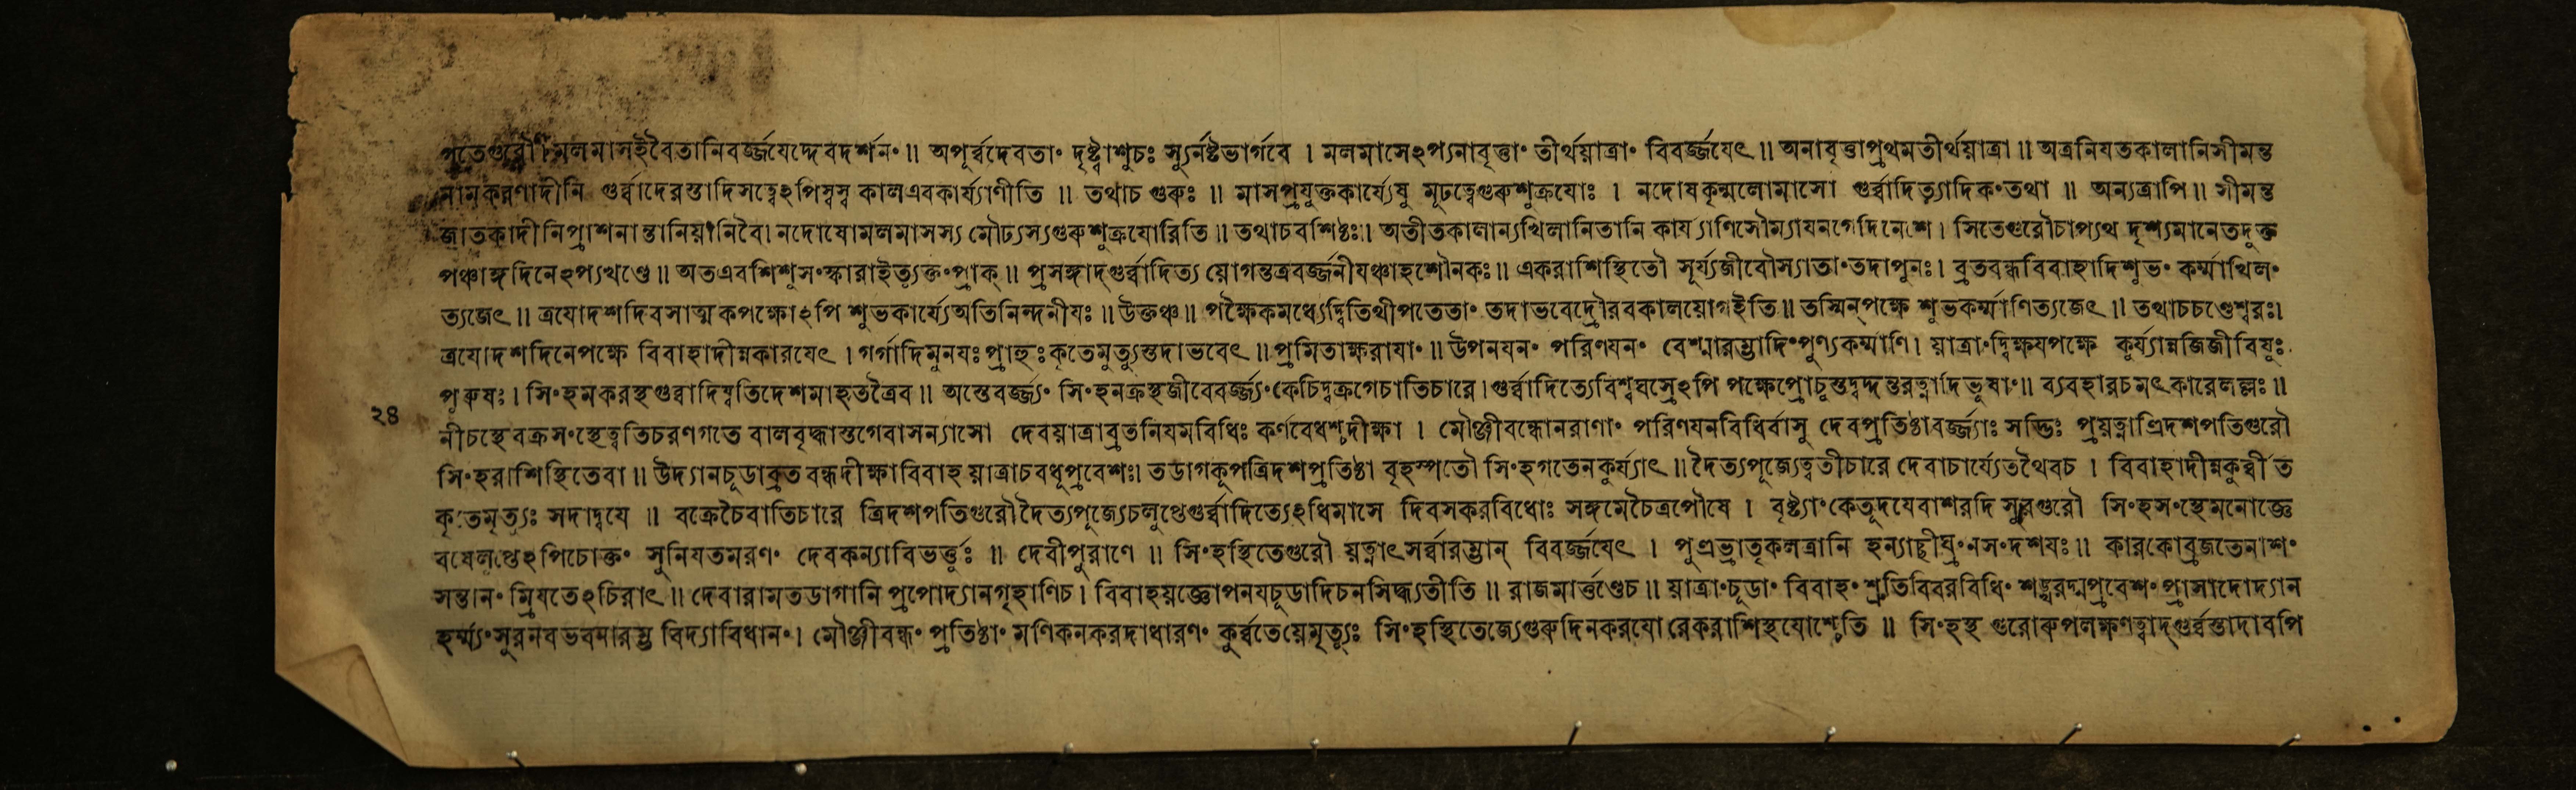 পুতেগুরৌ। মলমাসইবৈতানিবর্জ্জযেদ্দেবদর্শনং॥ অপূর্ব্বদেবতাং দৃষ্ট্বাশুচঃ স্যুর্নষ্টভার্গবে । মলমাসেঽপ্যনাবৃত্তাং তীর্থয়াত্রাং বিবর্জ্জযেৎ॥ অনাবৃত্তাপ্রথমতীর্থয়াত্রা॥ অত্রনিযতকালানিসীমন্ত
নামকরণাদীনি গুর্ব্বাদেরস্তাদিসত্বেঽপিস্বস্ব কালএবকার্য্যাণীতি ॥ তথাচ গুরুঃ ॥ মাসপ্রযুক্তকার্য্যেষু মূঢত্বেগুরুশুক্রযোঃ । নদোষকৃন্মলোমাসো গুর্ব্বাদিত্যাদিকংতথা ॥ অন্যত্রাপি॥ সীমন্ত
জাতকাদীনিপ্রাশনান্তানিয়ানিবৈ। নদোষোমলমাসস্য মৌঢ্যস্যগুরুশুক্রযোরিতি॥ তথাচবশিষ্ঠঃ॥ অতীতকালান্যখিলানিতানি কার্য্যাণিসৌম্যাযনগেদিনেশে। সিতেগুরৌচাপ্যথ দৃশ্যমানেতদুক্ত
পঞ্চাঙ্গদিনেঽপ্যখণ্ডে॥ অতএবশিশুসংস্কারাইত্যুক্তংপ্রাক্॥ প্রসঙ্গাদ্গুর্ব্বাদিত্য য়োগস্তত্রবর্জ্জনীযঞ্চাহশৌনকঃ॥ একরাশিস্থিতৌ সূর্য্যজীবৌস্যাতাংতদাপুনঃ। ব্রতবন্ধবিবাহাদিশুভং কর্ম্মাখিলং
ত্যজেৎ॥ ত্রযোদশদিবসাত্মকপক্ষোঽপি শুভকার্য্যেঅতিনিন্দনীযঃ॥ উক্তঞ্চ॥ পক্ষৈকমধ্যেদ্বিতিথীপতেতাং তদাভবেদ্রৌরবকালয়োগইতি॥ তস্মিন্পক্ষে শুভকর্ম্মাণিত্যজেৎ॥ তথাচচণ্ডেশ্বরঃ।
ত্রযোদশদিনেপক্ষে বিবাহাদীন্নকারযেৎ। গর্গাদিমুনযঃপ্রাহুঃকৃতেমৃত্যুস্তদাভবেৎ॥ প্রমিতাক্ষরাযাং॥ উপনযনং পরিণযনং বেশ্মারম্ভাদিংপুণ্যকর্ম্মাণি। য়াত্রাংদ্বিক্ষযপক্ষে কুর্য্যান্নজিজীবিষুঃ
পুরুষঃ। সিংহমকরস্থগুর্ব্বাদিষ্বতিদেশমাহতত্রৈব॥ অস্তেবর্জ্জ্যং সিংহনক্রস্থজীবেবর্জ্জ্যংকেচিদ্বক্রগেচাতিচারে। গুর্ব্বাদিত্যেবিশ্বঘস্রেঽপি পক্ষেপ্রোচুস্তদ্বদ্দন্তরত্নাদিভূষাং॥ ব্যবহারচমৎকারেলল্লঃ॥
২৪
নীচস্থেবক্রসংস্থেত্বতিচরণগতে বালবৃদ্ধাস্তগেবাসন্যাসো দেবয়াত্রাব্রতনিযমবিধিঃ কর্ণবেধশ্চদীক্ষা । মৌঞ্জীবন্ধোনরাণাং পরিণযনবিধির্বাসু দেবপ্রতিষ্ঠাবর্জ্জ্যাঃ সদ্ভিঃ প্রয়ত্নাত্ত্রিদশপতিগুরৌ
সিংহরাশিস্থিতেবা॥ উদ্যানচূডাব্রত বন্ধদীক্ষাবিবাহ য়াত্রাচবধূপ্রবেশঃ। তডাগকূপত্রিদশপ্রতিষ্ঠা বৃহস্পতৌ সিংহগতেনকুর্য্যাৎ॥ দৈত্যপূজ্যেত্বতীচারে দেবাচার্য্যেতথৈবচ । বিবাহাদীন্নকুর্ব্বীত
কৃতেমৃত্যুঃ সদাদ্বযে ॥ বক্রেচৈবাতিচারে ত্রিদশপতিগুরৌদৈত্যপূজ্যেচলুপ্তেগুর্ব্বাদিত্যেঽধিমাসে দিবসকরবিধোঃ সঙ্গমেচৈত্রপৌষে । বৃষ্ট্যাংকেতূদযেবাশরদি সুরগুরৌ সিংহসংস্থেমনোজ্ঞে
বষেলপ্তেঽপিচোক্তং সুনিযতমরণং দেবকন্যাবিভর্ত্তুঃ ॥ দেবীপুরাণে ॥ সিংহস্থিতেগুরৌ য়ত্নাৎসর্ব্বারম্ভান্ বিবর্জ্জযেৎ । পুত্রভ্রাতৃকলত্রানি হন্যাচ্ছীঘ্রংনসংদশযঃ॥ কারকোব্রজতেনাশং
সন্তানং ম্রিযতেঽচিরাৎ॥ দেবারামতডাগানি প্রপোদ্যানগৃহাণিচ। বিবাহয়জ্ঞোপনযচূডাদিচনসিদ্ধ্যতীতি॥ রাজমার্ত্তণ্ডেচ॥ য়াত্রাংচূডাং বিবাহং শ্রুতিবিবরবিধিং শত্রুরদ্মপ্রবেশং প্রাসাদোদ্যান
হর্ম্ম্যংসুরনবভবনারম্ভ বিদ্যাবিধানং। মৌঞ্জীবন্ধং প্রতিষ্ঠাং মণিকনকরদাধারণং কুর্ব্বতেয়েমৃত্যুঃ সিংহস্থিতেজ্যেগুরুদিনকরযোরেকরাশিস্থযোশ্চেতি ॥ সিংহস্থ গুরোরুপলক্ষণত্বাদ্গুর্ব্বস্তাদাবপি